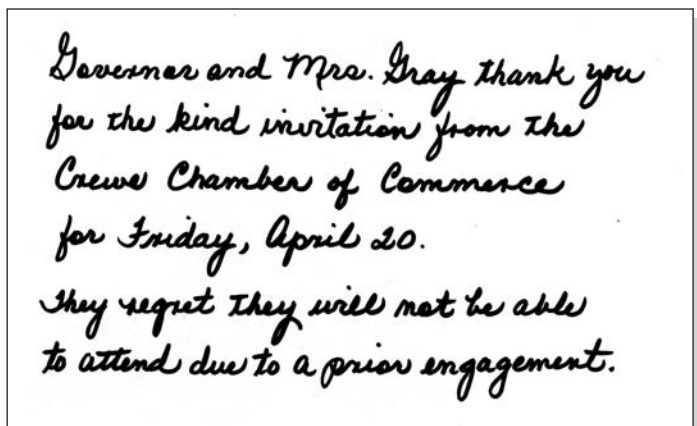 Governor and Mrs. Gray thank you
for the kind invitation from the
Crewe Chamber of Commerce
for Friday, April 20.
They regret they will not be able
to attend due to a prior engagement.